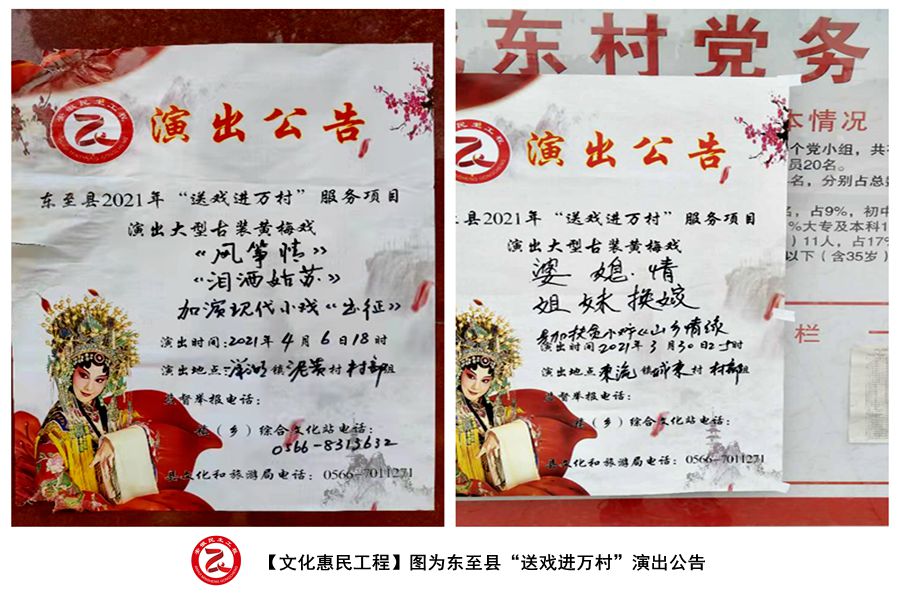 安徽民生工程
演出公告
东至县2021年“送戏进万村”服务项目
演出大型古装黄梅戏
《风筝情》
《泪洒姑苏》
加演现代小戏《出征》
演出时间:2021年4月6日18时
演出地点:洋湖镇泥黄村村部组
监督举报电话:
镇(乡)综合文化站电话:
0566-8313632
县文化和旅游局电话:0566-7011271
东村党务
演出公告
县2021年“送戏进万村”服务项目
演出大型古装黄梅戏
婆媳情
姐妹换嫁
参加扶贫小戏《山乡情缘
演出时间:2021年3月30日2-5时
演出地点 东流镇 东村 村部组
监督举报电话:
镇(乡)综合文化站电话:
县文化和旅游局电话:0566-7011271
本情况
个党小组,共有
员20名。
名,分别占总数
名,占9%,初中
%大专及本科1
)11人,占17%
以下(含35岁)
栏
【文化惠民工程】图为东至县“送戏进万村”演出公告